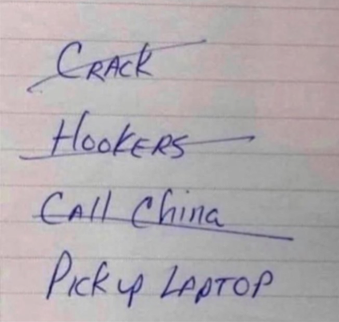 CRACK
HOOKERS
CAll China
Pick up LAPTOP